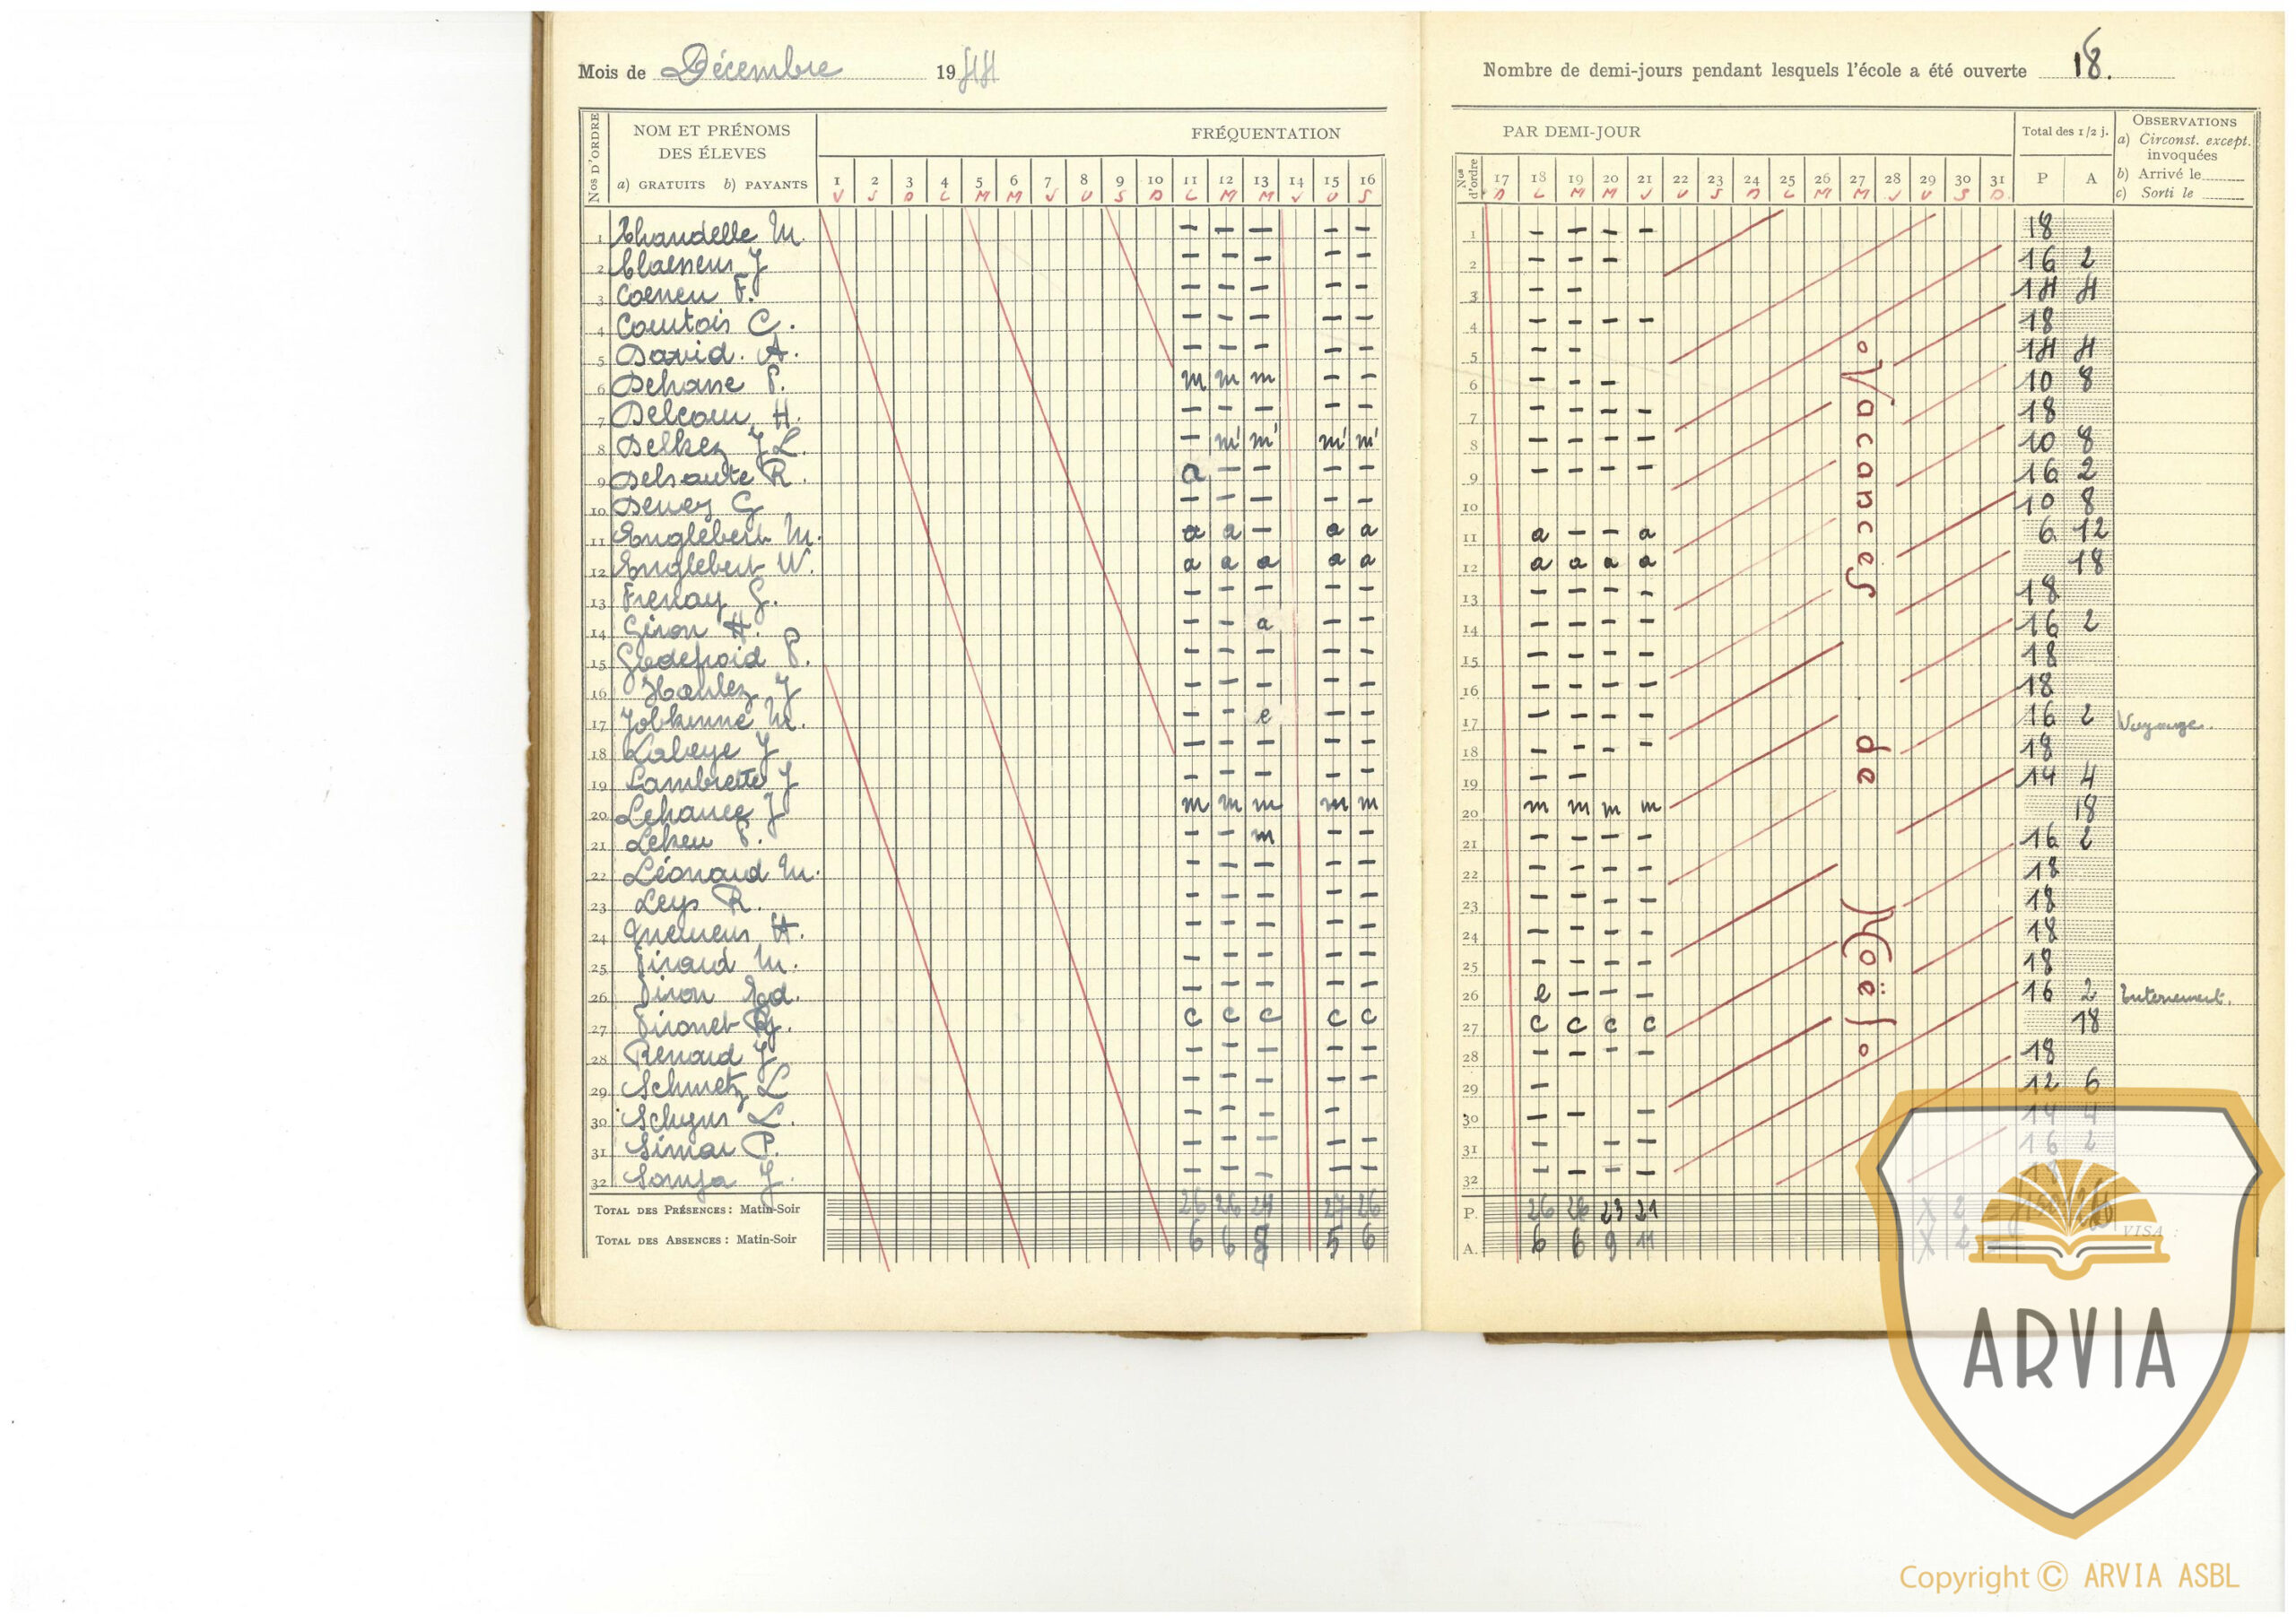 Mois de Décembre 1944
NOM ET PRÉNOMS
DES ÉLEVES
a) GRATUITS b) PAYANTS
Nos D'ORDRE
FRÉQUENTATION
1 2 3 4 5 6 7 8 9 10 11 12 13 14 15 16
V S D L M M J V S D L M M J V S
1 Chandelle M.
2 Claessens J
3 Coenen F.
4 Courtois C.
5 David. A.
6 Dehane P. m m m - -
7 Delcour H.
8 Delhez J L. - m' m' m' m'
9 Delsaute R. a - - - -
10 Dewez G
11 Englebert M. a a - a a
12 Englebert W. a a a a a
13 Frenay G.
14 Giron H. - - a - -
15 Godefroid P.
16 Haulez J
17 Jobkenne M. - - e - -
18 Labeye J
19 Lambrette J
20 Lehance J m m m m m
21 Leheu P. - - m - -
22 Léonard M.
23 Leys R.
24 H.
25 Pirard M.
26 Piron Ed.
27 Pironet c c c c c
28 Renard J
29 Schmetz L
30 Schyns L.
31 Simar P.
32 J.
TOTAL DES PRÉSENCES : Matin-Soir 26 26 24 27 26
TOTAL DES ABSENCES : Matin-Soir 6 6 8 5 6
Nombre de demi-jours pendant lesquels l'école a été ouverte 18.
PAR DEMI-JOUR
Nos d'ordre
17 18 19 20 21 22 23 24 25 26 27 28 29 30 31
D L M M J V S D L M M J V S D
Total des 1/2 j.
P A
OBSERVATIONS
a) Circonst. except.
invoquées
b) Arrivé le
c) Sorti le
1 - - - - 18
2 - - - 16 2
3 - - 14 4
4 - - - - 18
5 - - 14 4
6 - - - 10 8
7 - - - - 18
8 - - - - 10 8
9 - - - - 16 2
10 10 8
11 a - - a 6 12
12 a a a a 18
13 - - - - 18
14 - - - - 16 2
15 - - - - 18
16 - - - - 18
17 - - - - 16 2 Voyage.
18 - - - - 18
19 - - 14 4
20 m m m m 18
21 - - - - 16 2
22 - - - - 18
23 - - - - 18
24 - - - - 18
25 - - - - 18
26 e - - - 16 2 Enterrement.
27 c c c c 18
28 - - - - 18
29 - 12 6
30 - - - 14 4
31 - - - 16 2
32 - - - - 18
P. 26 26 23 21
A. 6 6 9 11
Vacances de Noël
VISA :
ARVIA
Copyright © ARVIA ASBL